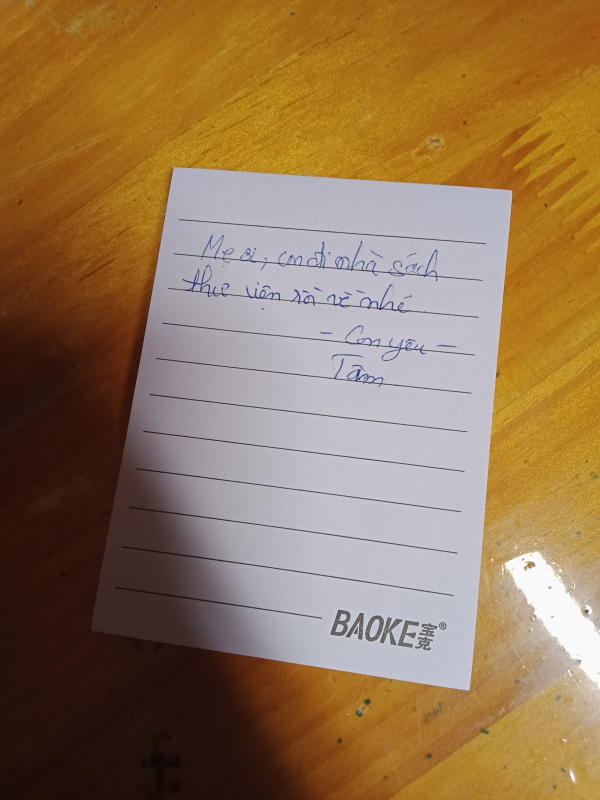 Mẹ ơi, con đi nhà sách
thư viện rồi về nhé.
- Con yêu -
Tâm
BAOKE宝克®